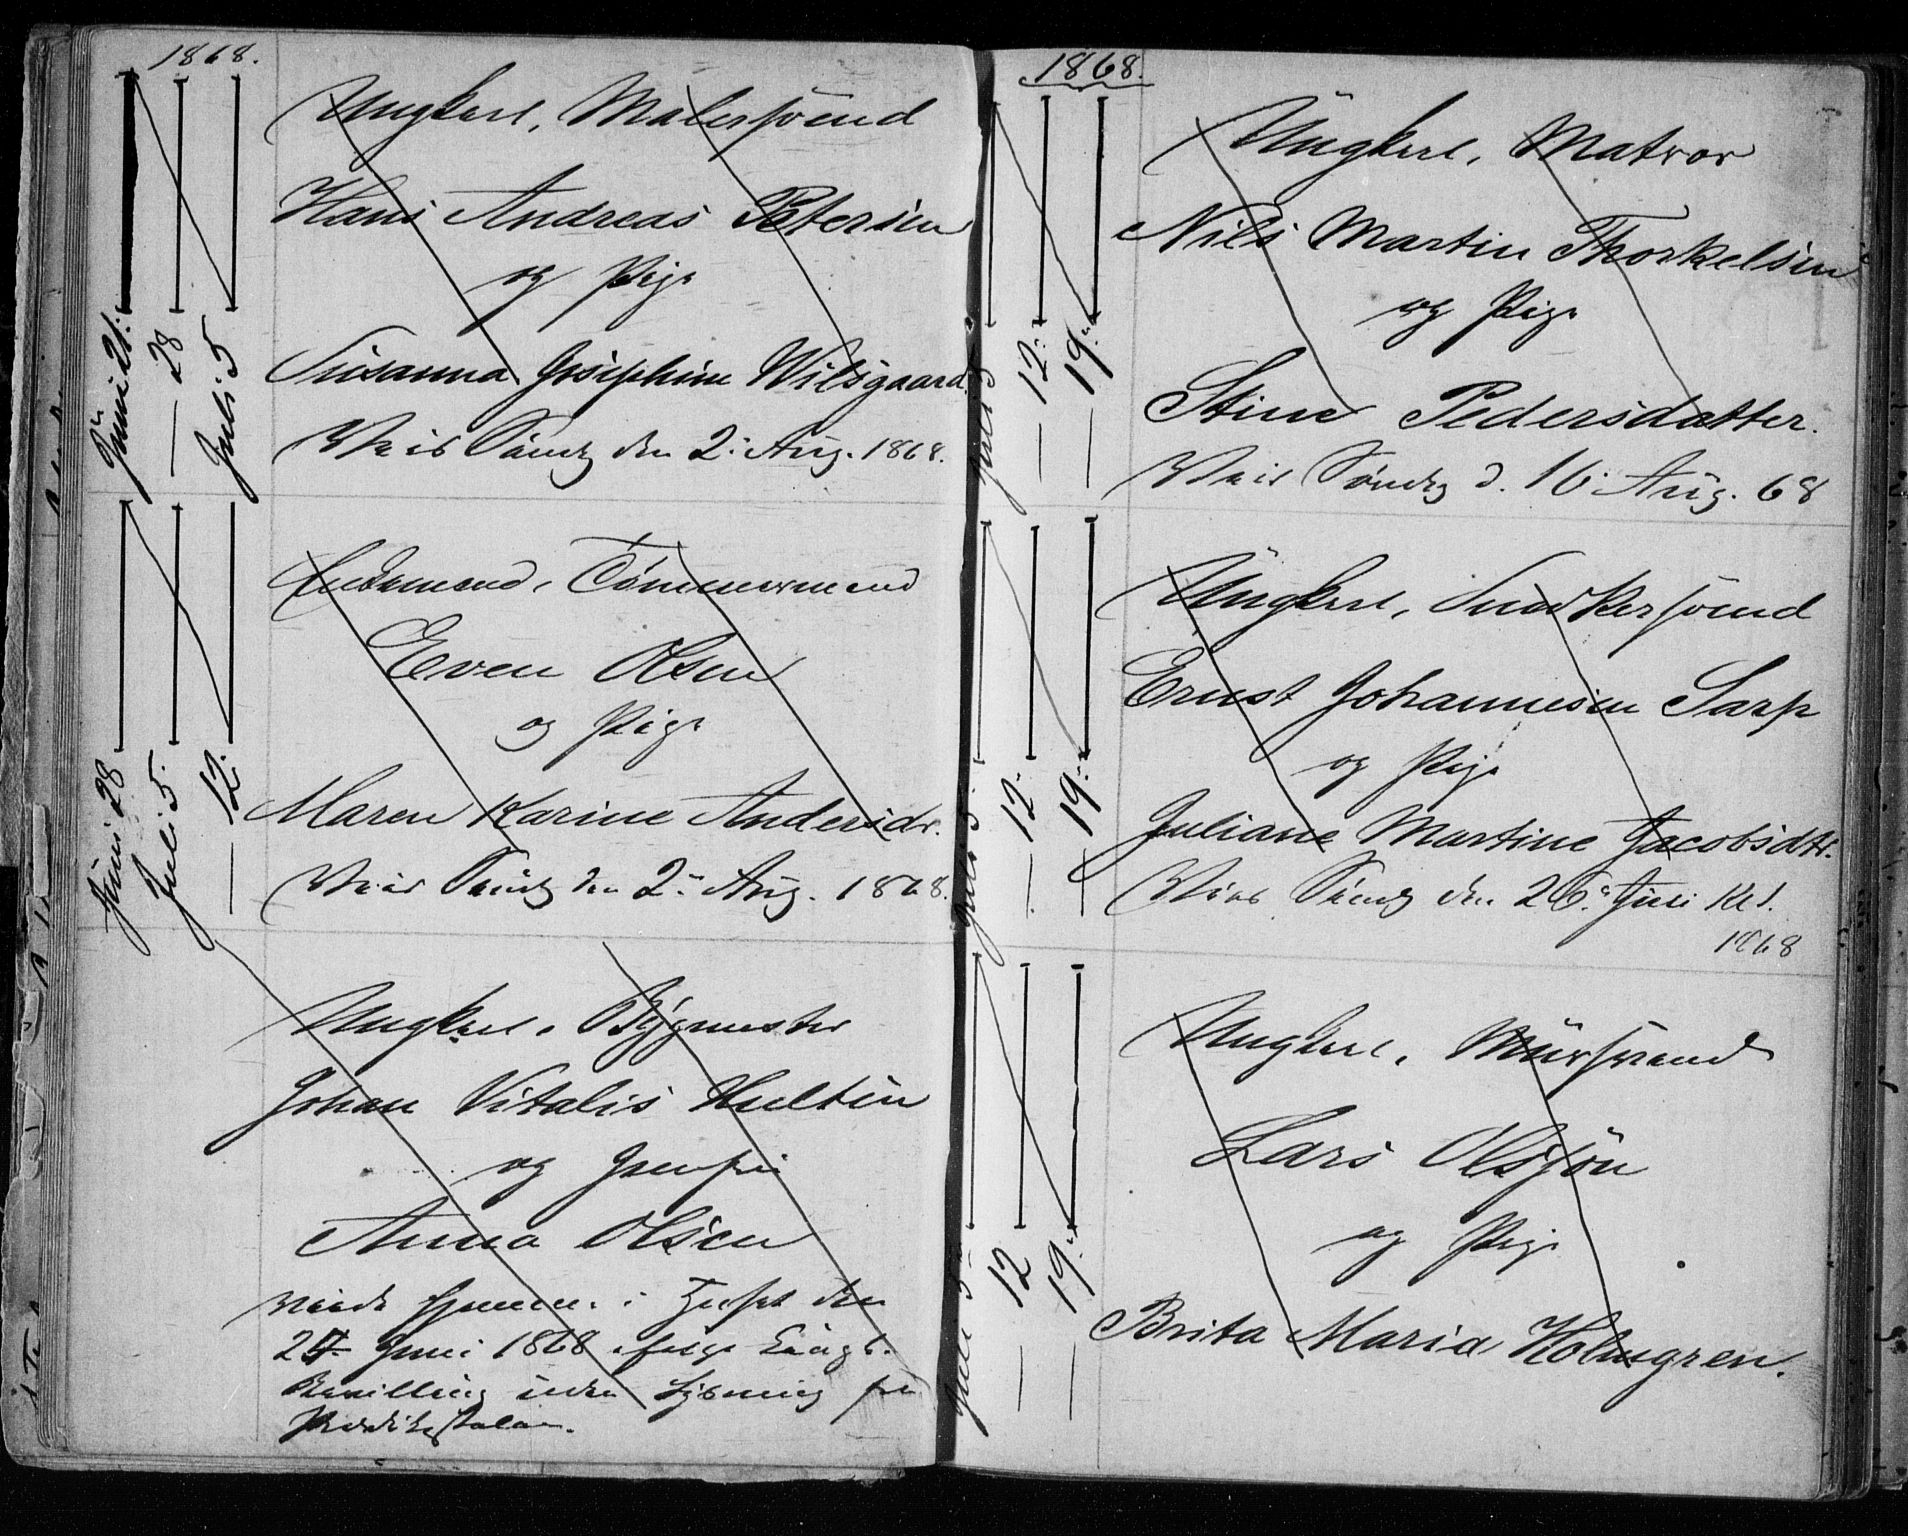 1868.
Juni 21.
— 28
Juli 5
Ungkarl, Malersvend
Hans Andreas Petersen
og Pige
Susanna Josephine Wilsgaard
Viis Sønd. den 2. Aug. 1868.
Juni 28
Juli 5.
— 12.
Enkemand, Tømmermand
Even Olsen
og Pige
Maren Karine Andersdr.
Viis Sønd. den 2. Aug. 1868.
Ungkarl, Bygmester
Johan Vitalis Hultin
og Jomfru
Anna Olsen
viede i Huset den
27 Juni 1868 ifølge Kongl.
Bevilling uden Lysning fra
Prædikestolen.
1868.
Juli 5
— 12.
— 19.
Ungkarl, Matros
Nils Martin Thorkelsen
og Pige
Stine Pedersdatter.
Viis Søndag d. 16 Aug. 68
Juli 5.
— 12.
— 19.
Ungkarl, Snedkersvend
Ernst Johannesen Sarp
og Pige
Juliane Martine Jacobsdtr.
Sønd. den 26. Juli Kl 1.
1868
Juli 5
— 12
— 19.
Ungkarl, Mursvend
Lars Olsson
og Pige
Brita Maria Holmgren.